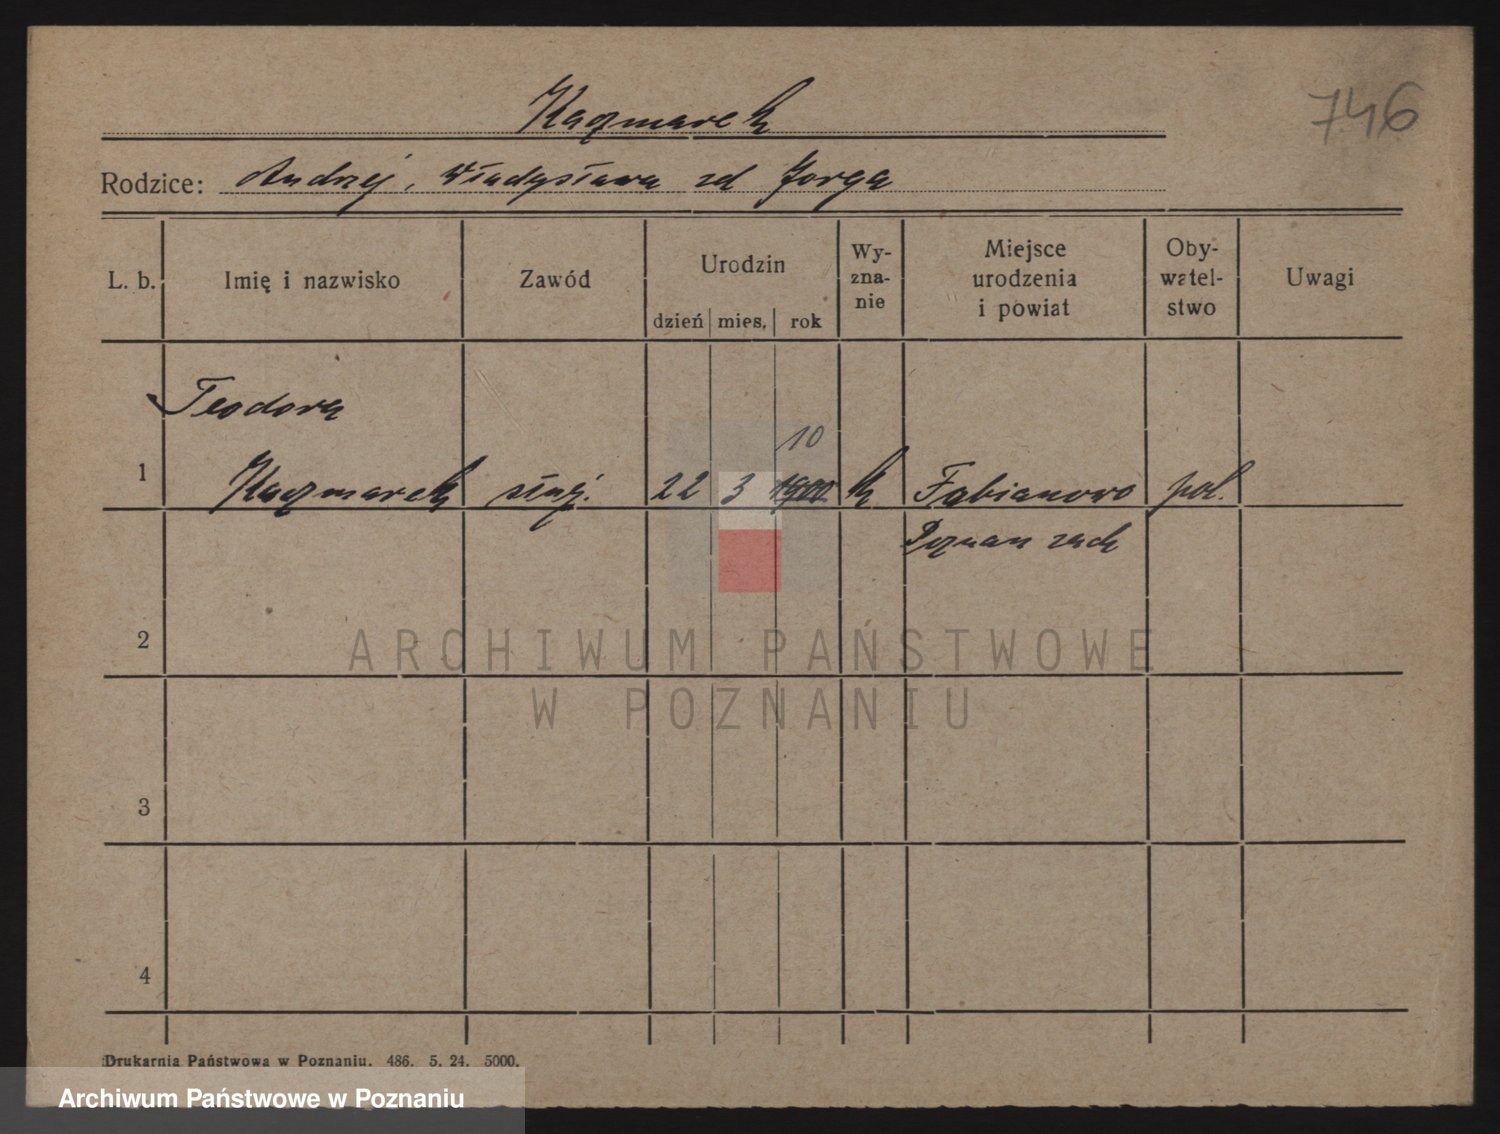 746
Kaczmarek
Rodzice: Andrzej, Władysława zd Jorga
L. b. Imię i nazwisko Zawód Urodzin Wy- Miejsce Oby- Uwagi
zna- urodzenia watel-
nie i powiat stwo
dzień mies. rok
Teodora
10
1 Kaczmarek służ. 22 3 1900 k Fabianowo pol.
Poznan zach
2
ARCHIWUM PAŃSTWOWE
W POZNANIU
3
4
Drukarnia Państwowa w Poznaniu. 486. 5. 24. 5000.
Archiwum Państwowe w Poznaniu